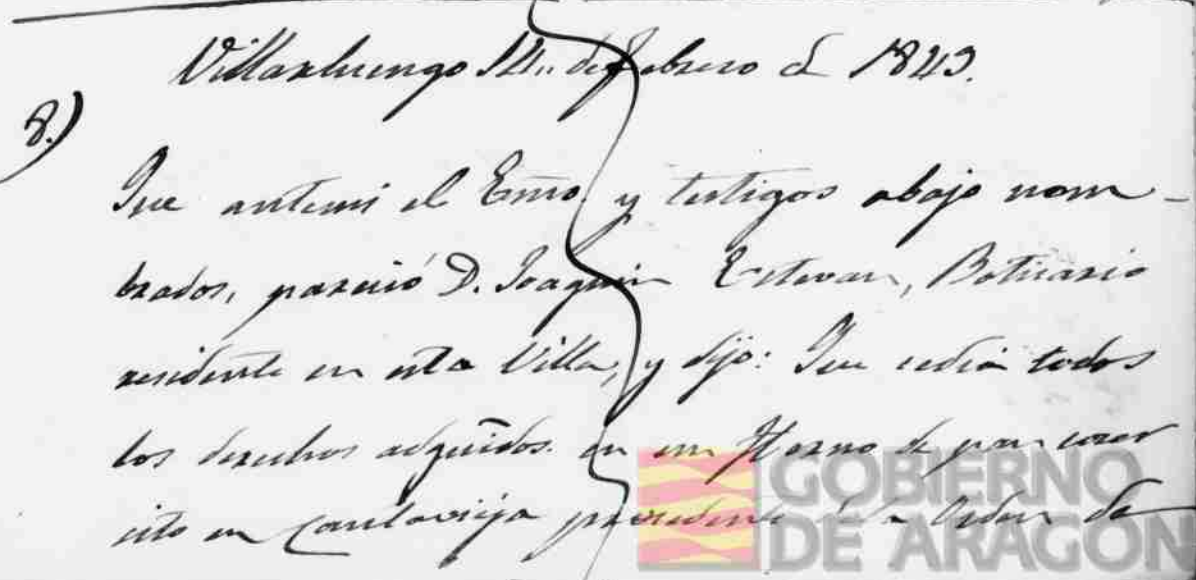 Villarluengo 14,, de Febrero de 1843.
8.)
Que antemi el Esno. y testigos abajo nom-
brados, pareció D. Joaquin Estevan, Boticario
residente en esta Villa, y dijo: Que cedia todos
los derechos adquiridos en un Horno de pan cocer
sito en Cantavieja procedente de la Orden de
GOBIERNO
DE ARAGON